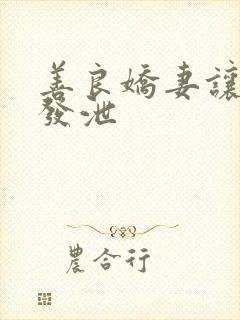 善良嬌妻讓
發泄
農合行